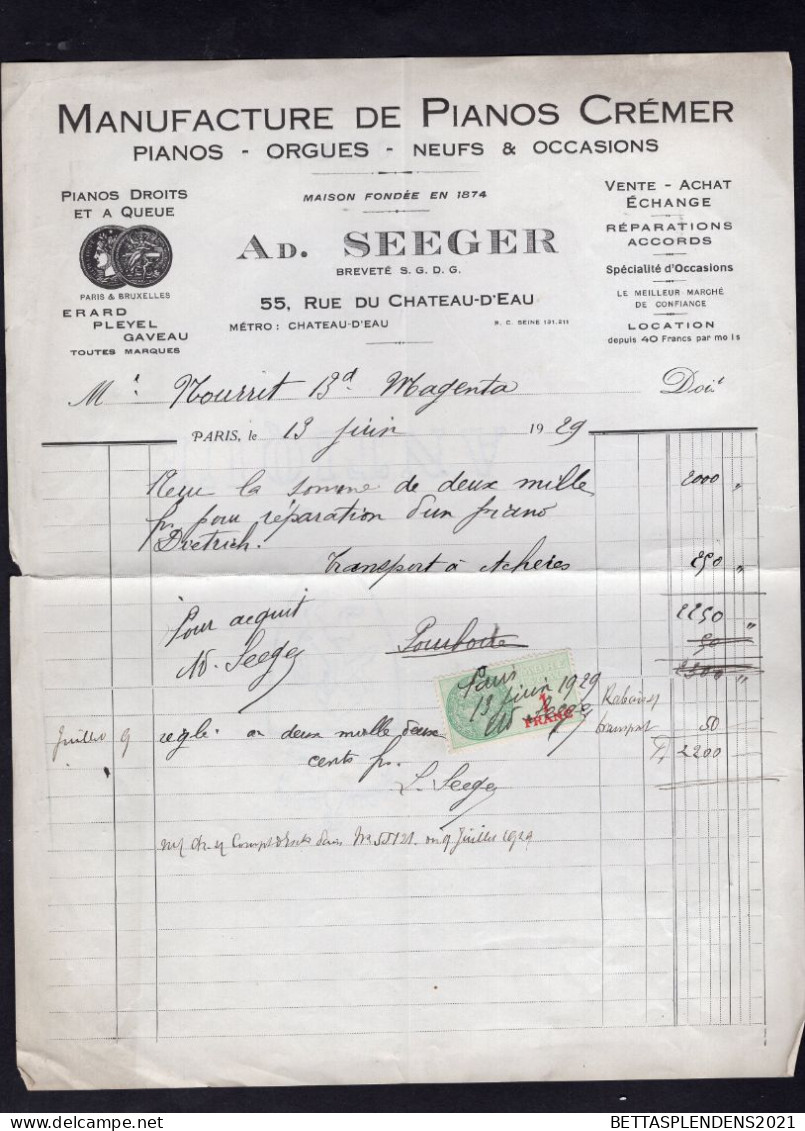 MANUFACTURE DE PIANOS CRÉMER
PIANOS - ORGUES - NEUFS & OCCASIONS
PIANOS DROITS
ET A QUEUE
PARIS & BRUXELLES
ERARD
PLEYEL
GAVEAU
TOUTES MARQUES
MAISON FONDÉE EN 1874
AD. SEEGER
BREVETÉ S. G. D. G.
55, RUE DU CHATEAU-D'EAU
MÉTRO: CHATEAU-D'EAU
R. C. SEINE 131.211
VENTE - ACHAT
ÉCHANGE
RÉPARATIONS
ACCORDS
Spécialité d'Occasions
LE MEILLEUR MARCHÉ
DE CONFIANCE
LOCATION
depuis 40 Francs par mois
Mr Nourrit Bd Magenta Doit
PARIS, le 13 juin 1929
Reçu la somme de deux mille 2000 "
fr pour réparation d'un piano
Dietrich.
Transport à Achères 250 "
Pour acquit 2250 "
Ad. Seeger Pourboire 50 "
2300 "
Paris
13 juin 1929
Ad Seeger
1
FRANC
Rabais sur
transport 50
Fr 2200
Juillet 9 réglé en deux mille deux
cents fr.
L. Seeger
Juillet 1929
BETTASPLENDENS2021